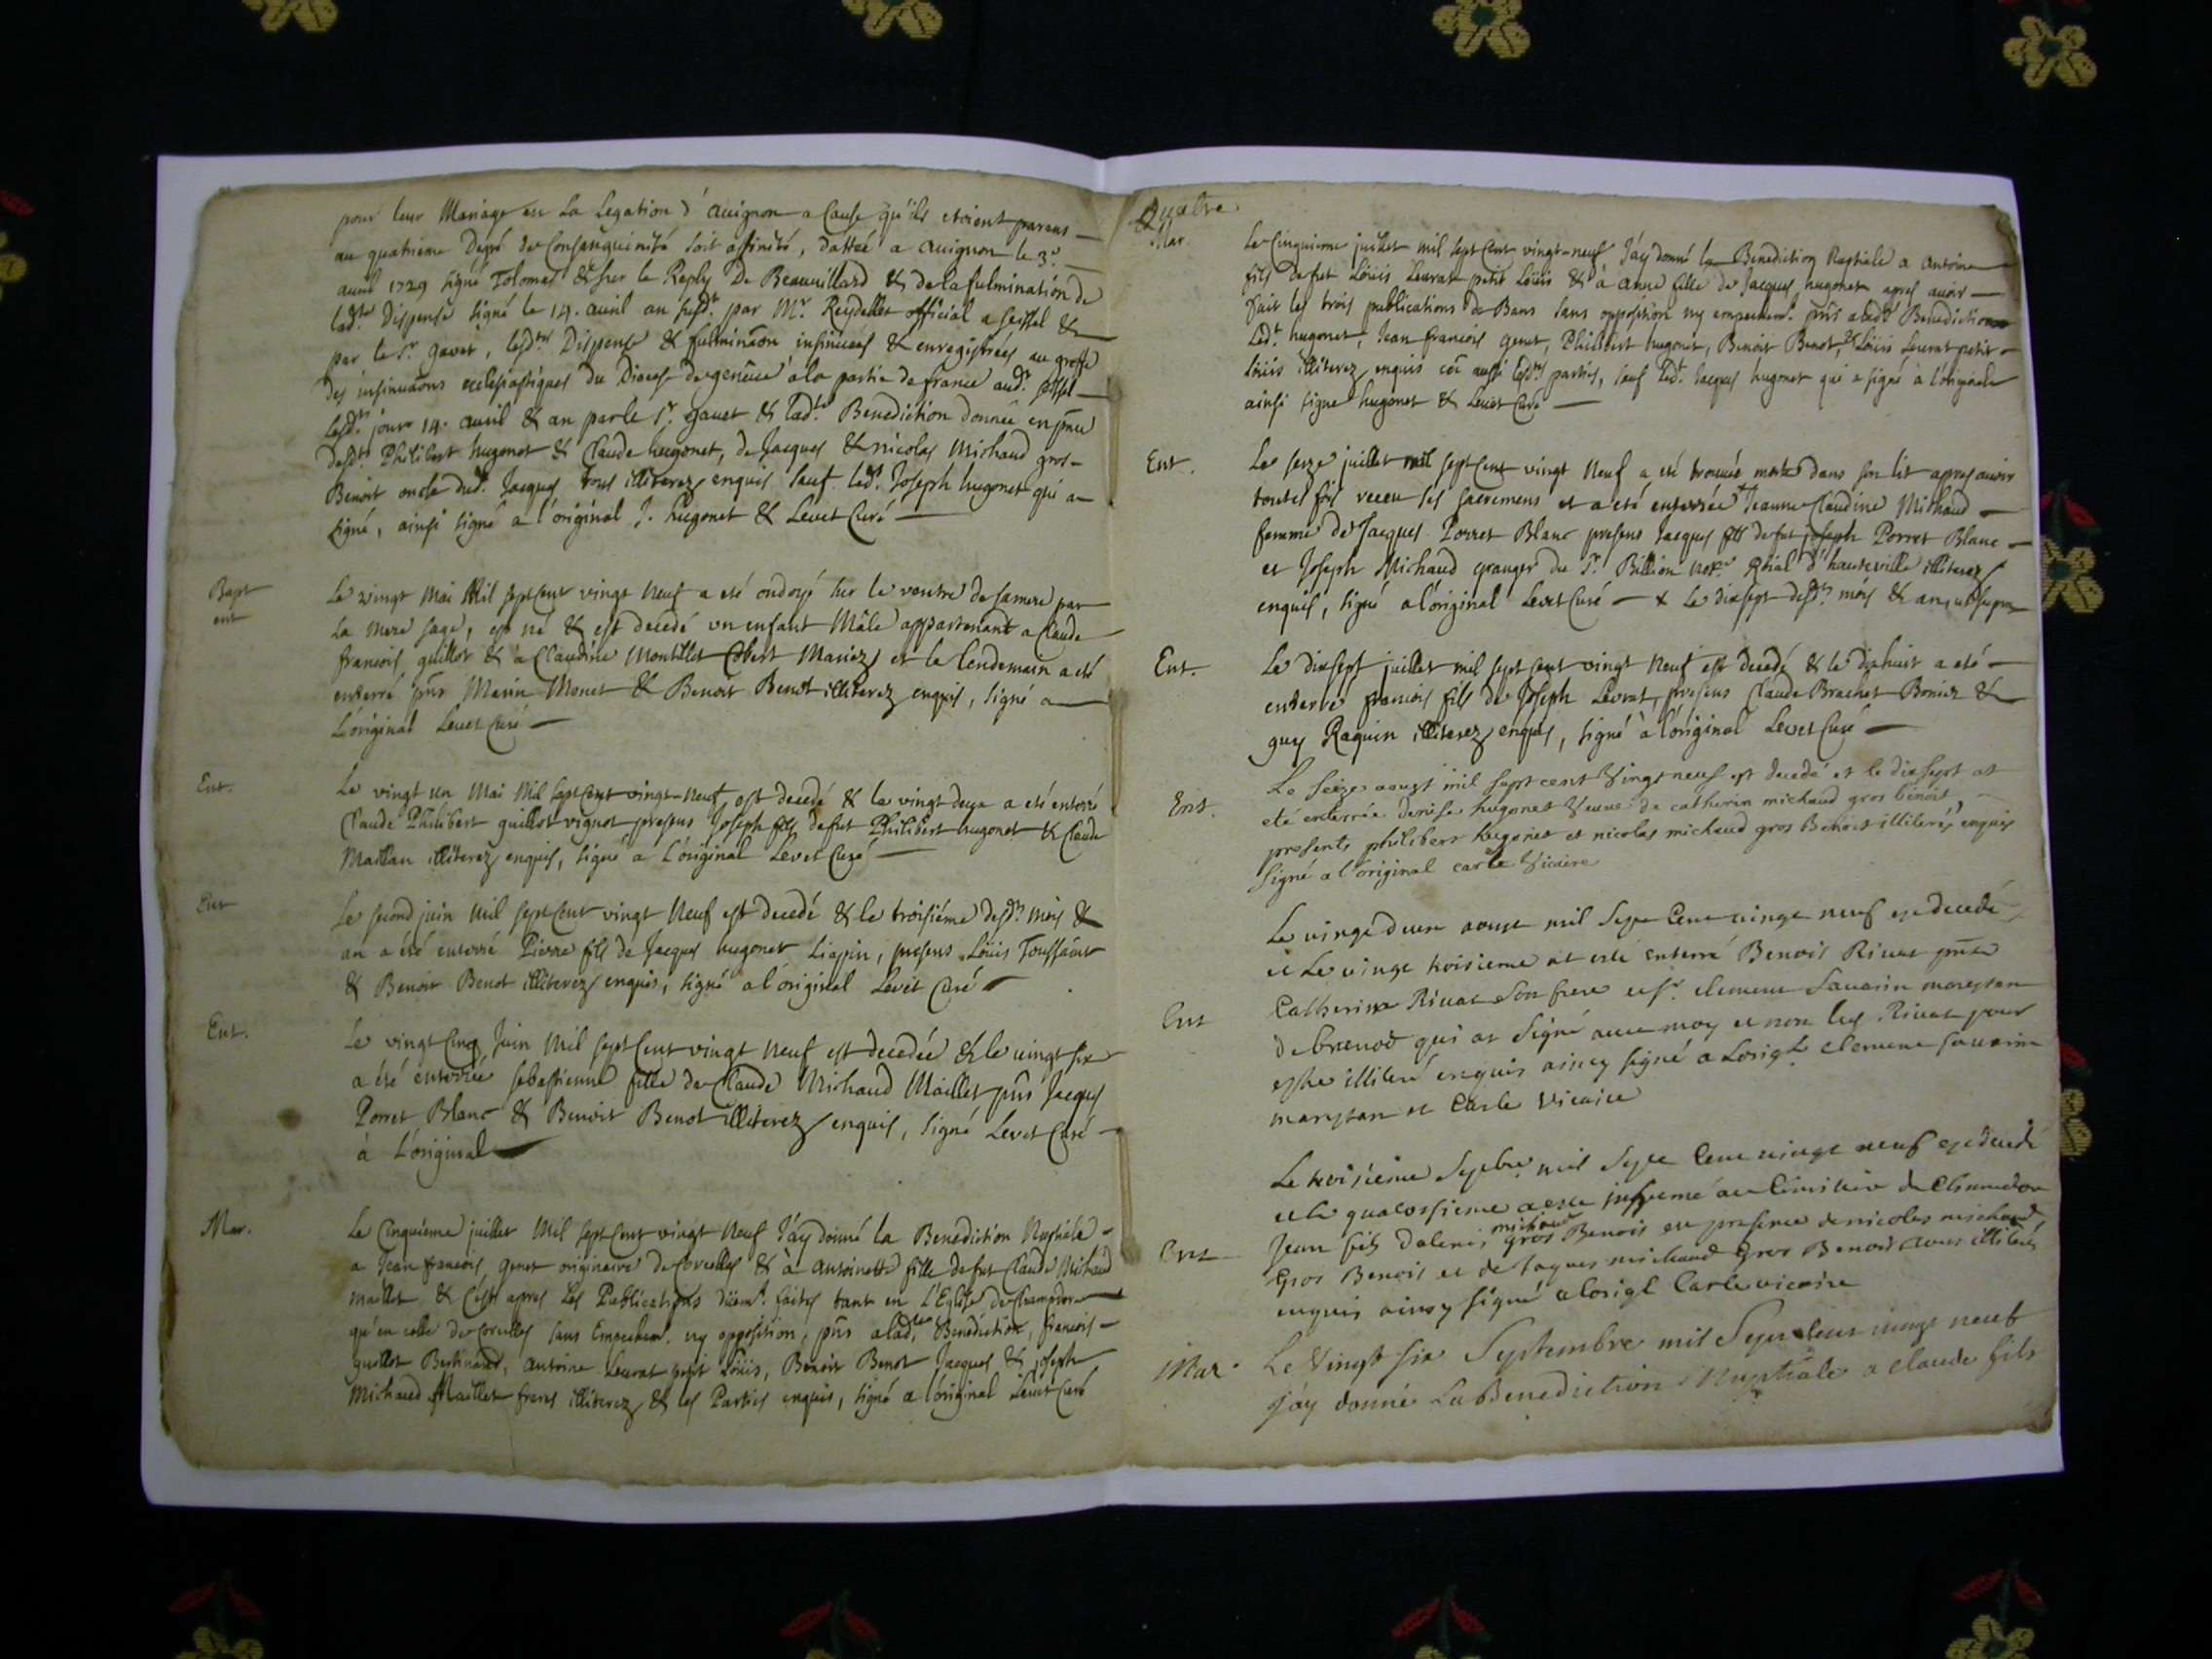 pour leur Mariage en La Legation d'avignon a Cause qu'ils etoient parens
au quatrieme Degré de Consanguinité soit affinité, dattée a avignon le 3e.
avril 1729 signé Tolomas & sur le Reply De Beauvillard & de la fulmination de
ladte. Dispense signé le 14. avril an susdt. par Mr. Reydellet official a seissel &
par le Sr. gavet, lesdtes Dispense & fulminãon insinuées & enregistrées au greffe
des insinuãons ecclesiastiques du Diocese de geneve à la partie de france audt.
lesdt. jour 14. avril & an par le Sr. gavet & ladte. Benediction donnée en pñce
desdts. Philibert hugonet & Claude hugonet, de Jacques & nicolas Michaud gros-
Benoit oncle dudt. Jacques tous illiterez enquis sauf ledt. Joseph hugonet qui a
signé, ainsi signé a l'original J. hugonet & Levet Curé
Bapt
ent
Le vingt Mai Mil sept Cent vingt Neuf a eté ondoyé sur le ventre de sa mere par
La mere sage, est né & est decedé un enfant Mâle appartenant a Claude
francois guillot & a Claudine Montillet Mariez et le lendemain a eté
enterré pñs Marin Monet & Benoit Benot illiterez enquis, signé a
L'original Levet Curé
Ent.
Le vingt un Mai Mil sept Cent vingt-Neuf est decedé & le vingt deux a eté enterré
Claude Philibert guillot vignot presens Joseph fils de fut Philibert hugonet & Claude
Maillan illiterez enquis, signé a L'original Levet Curé
Ent
Le second juin Mil sept Cent vingt Neuf est decedé & le troisiéme desdts mois &
an a été enterré Pierre fils de Jacques hugonet Liapin, presens Loüis Toussaint
& Benoit Benot illiterez enquis, signé a l'original Levet Curé
Ent.
Le vingt Cinq Juin Mil sept Cent vingt Neuf est decedée & le vingt six
a été enterrée sebastienne fille de Claude Michaud Maillet pñs Jacques
Porret Blanc & Benoit Benot illiterez enquis, signé Levet Curé
à L'original
Mar.
Le Cinquiéme juillet Mil sept Cent vingt Neuf J'ay donné la Benediction Nuptiale
a Jean francois genet originaire de Corcelles & à antoinette fille de fut Claude Michaud
Maillet & c'est apres les Publications düem.t faites tant en L'Eglise de Champdor
qu'en celle de Corcelles sans Empechem.t ny opposition, pñs a ladte. Benediction, francois
guillot Bertinand, antoine Levrat petit Loüis, Benoit Benot Jacques & joseph
Michaud Maillet freres illiterez & les Parties enquis, signé a l'original Levet Curé
Quatre
Mar.
Le Cinquieme juillet mil sept Cent vingt-neuf J'ay donné la Benediction Nuptiale a antoine
fils de fut Loüis Levrat petit Loüis & à anne fille de Jacques hugonet apres avoir
fait les trois publications de Bans sans opposition ny empechem.t pñs a ladte Benediction
Ledt. hugonet, Jean francois genet, Philibert hugonet, Benoit Benot, & Loüis Levrat petit
Loüis illiterez enquis cõe aussi lesdtes parties, sauf ledt. Jacques hugonet qui a signé à l'original
ainsi signé hugonet & Levet Curé
Ent.
Le seize juillet mil sept Cent vingt Neuf a eté trouvée morte dans son lit apres avoir
toutes fois receu ses sacremens et a eté enterrée + Jeanne Claudine Michaud
femme de Jacques Porret Blanc presens Jacques fils de fut joseph Porret Blanc
et Joseph Michaud granger du Sr. Billion Nore. Roïal d'hauteville illiterez
enquis, signé a l'original Levet Curé + Le dix sept desdts. mois & an, ut supra
Ent.
Le dixsept juillet mil sept cent vingt Neuf est decedé & le dixhuit a eté
enterré francois fils de Joseph Levrat, presens Claude Brachet Bonier &
guy Raquin illiterez enquis, signé à l'original Levet Curé
Ent.
Le seize aougt mil sept cent vingt neuf est decedé et le dix sept at
eté enterrée denise hugonet veuve de catherin michaud gros benoit,
presents philibert hugonet et nicolas michaud gros Benoit illiterés enquis
signé a l'original carle vicaire
Ent
Le vingt deux aoust mil Sept Cent vingt neuf est decedé
et Le vingt troisieme at esté enterré Benoit Rivat pnte
Catherine Rivat son frere et Sr. clement Savarin
de brenod qui at signé avec moy et non led Rivat pour
estre illiteré enquis ainsy signé a Lorigl clement savarin
et Carle vicaire
Ent
Le troisieme Sepbre mil Sept Cent vingt neuf est decedé
et le quatorsieme a esté inhumé au Cimitiere de Chamdor
Jean fils Dalexis michaud gros Benoit en presence de nicolas michaud
Gros Benoit et de Jaques michaud Gros Benoit tous illiterés
enquis ainsy signé a lorigl Carle vicaire
Mar.
Le Vingt six Septembre mil Sept Cent vingt neuf
j'ay donné La Benediction Nuptiale a claude fils